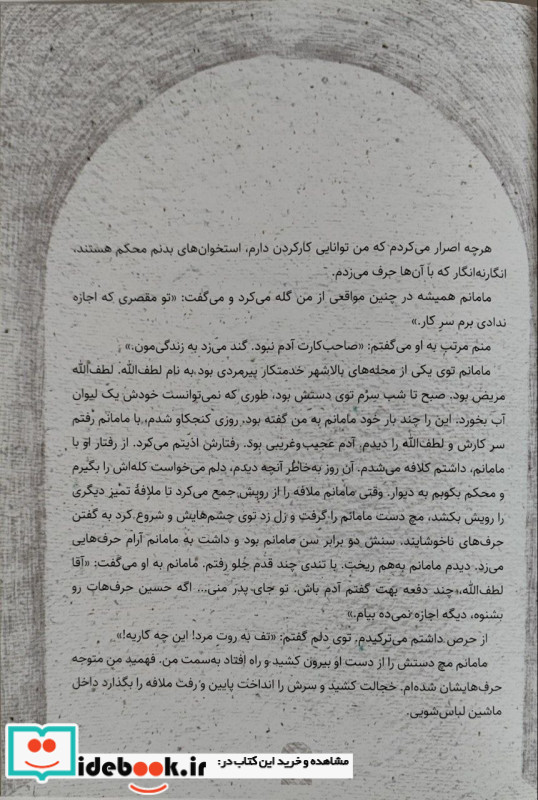 هرچه اصرار می‌کردم که من توانایی کارکردن دارم، استخوان‌های بدنم محکم هستند،
انگارنه‌انگار که با آن‌ها حرف می‌زدم.
مامانم همیشه در چنین مواقعی از من گله می‌کرد و می‌گفت: «تو مقصری که اجازه
ندادی برم سر کار.»
منم مرتب به او می‌گفتم: «صاحب‌کارت آدم نبود. گند می‌زد به زندگی‌مون.»
مامانم توی یکی از محله‌های بالاشهر خدمتکار پیرمردی بود به نام لطف‌الله. لطف‌الله
مریض بود. صبح تا شب سِرُم توی دستش بود، طوری که نمی‌توانست خودش یک لیوان
آب بخورد. این را چند بار خود مامانم به من گفته بود. روزی کنجکاو شدم، با مامانم رفتم
سر کارش و لطف‌الله را دیدم. آدم عجیب‌وغریبی بود. رفتارش اذیتم می‌کرد. از رفتار او با
مامانم، داشتم کلافه می‌شدم. آن روز به‌خاطر آنچه دیدم، دلم می‌خواست کله‌اش را بگیرم
و محکم بکوبم به دیوار. وقتی مامانم ملافه را از رویش جمع می‌کرد تا ملافهٔ تمیز دیگری
را رویش بکشد، مچ دست مامانم را گرفت و زل زد توی چشم‌هایش و شروع کرد به گفتن
حرف‌های ناخوشایند. سنش دو برابر سن مامانم بود و داشت به مامانم آرام حرف‌هایی
می‌زد. دیدم مامانم به‌هم ریخت. با تندی چند قدم جلو رفتم. مامانم به او می‌گفت: «آقا
لطف‌الله، چند دفعه بهت گفتم آدم باش. تو جای پدر منی... اگه حسین حرف‌هات رو
بشنوه، دیگه اجازه نمی‌ده بیام.»
از حرص داشتم می‌ترکیدم. توی دلم گفتم: «تف به روت مرد! این چه کاریه!»
مامانم مچ دستش را از دست او بیرون کشید و راه افتاد به‌سمت من. فهمید من متوجه
حرف‌هایشان شده‌ام. خجالت کشید و سرش را انداخت پایین و رفت ملافه را بگذارد داخل
ماشین لباس‌شویی.
مشاهده و خرید این کتاب در:
idebook.ir